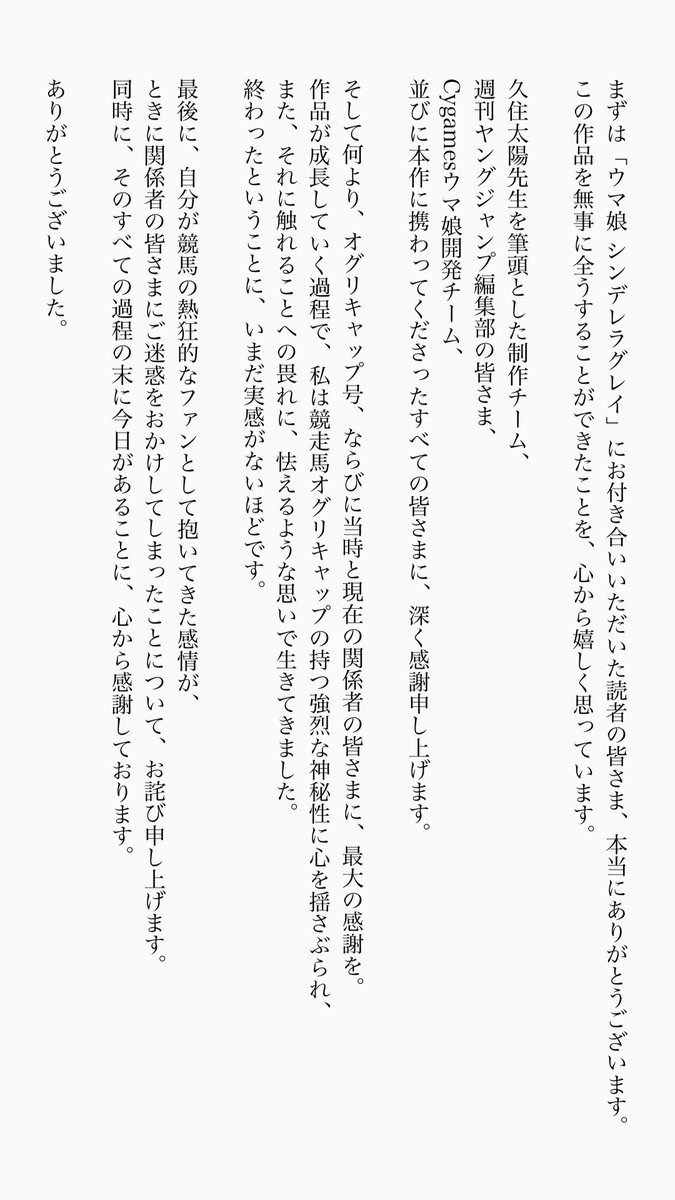 まずは「ウマ娘 シンデレラグレイ」にお付き合いいただいた読者の皆さま、本当にありがとうございます。
この作品を無事に全うすることができたことを、心から嬉しく思っています。
久住太陽先生を筆頭とした制作チーム、
週刊ヤングジャンプ編集部の皆さま、
Cygamesウマ娘開発チーム、
並びに本作に携わってくださったすべての皆さまに、深く感謝申し上げます。
そして何より、オグリキャップ号、ならびに当時と現在の関係者の皆さまに、最大の感謝を。
作品が成長していく過程で、私は競走馬オグリキャップの持つ強烈な神秘性に心を揺さぶられ、
また、それに触れることへの畏れに、怯えるような思いで生きてきました。
終わったということに、いまだ実感がないほどです。
最後に、自分が競馬の熱狂的なファンとして抱いてきた感情が、
ときに関係者の皆さまにご迷惑をおかけしてしまったことについて、お詫び申し上げます。
同時に、そのすべての過程の末に今日があることに、心から感謝しております。
ありがとうございました。